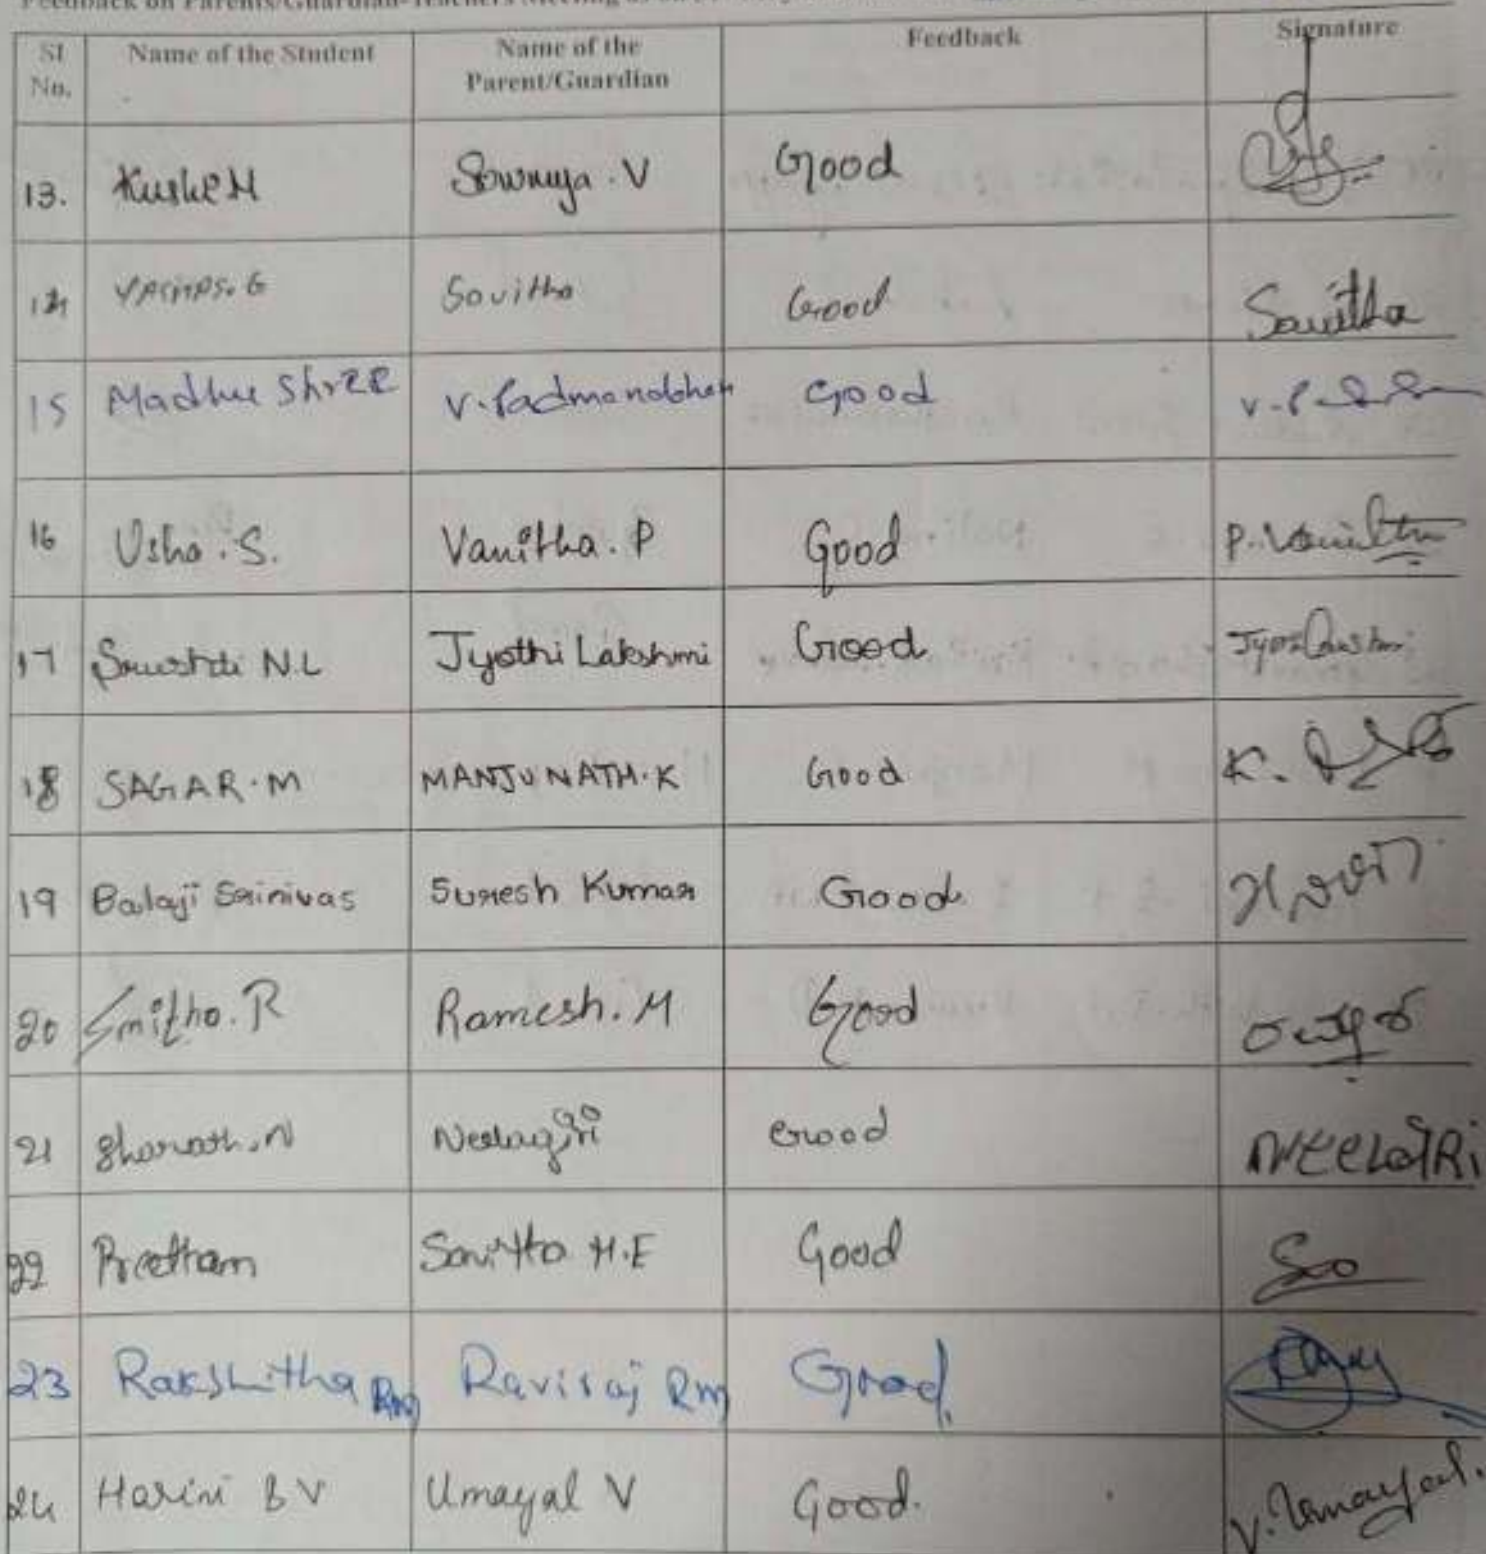 Feedback on Parents/Guardian-Teachers Meeting
Sl No. Name of the Student Name of the Parent/Guardian Feedback Signature
13. Sowmya . V Good
14 YASHAS. G Savitha Good Savitha
15 Madhu Shree V. Padmanabhan Good
16 Usha . S. Vanitha . P Good P. Vanitha
17 N.L Jyothi Lakshmi Good
18 SAGAR . M MANJUNATH . K Good K.
19 Balaji Srinivas Suresh Kumar Good
20 Smitha . R Ramesh . M Good
21 Sharath . N Neelagiri Good
22 Preetham Savitha H.E Good
23 Rakshitha RM Raviraj RM Good
24 Harini B V Umayal V Good. V. Umayal.